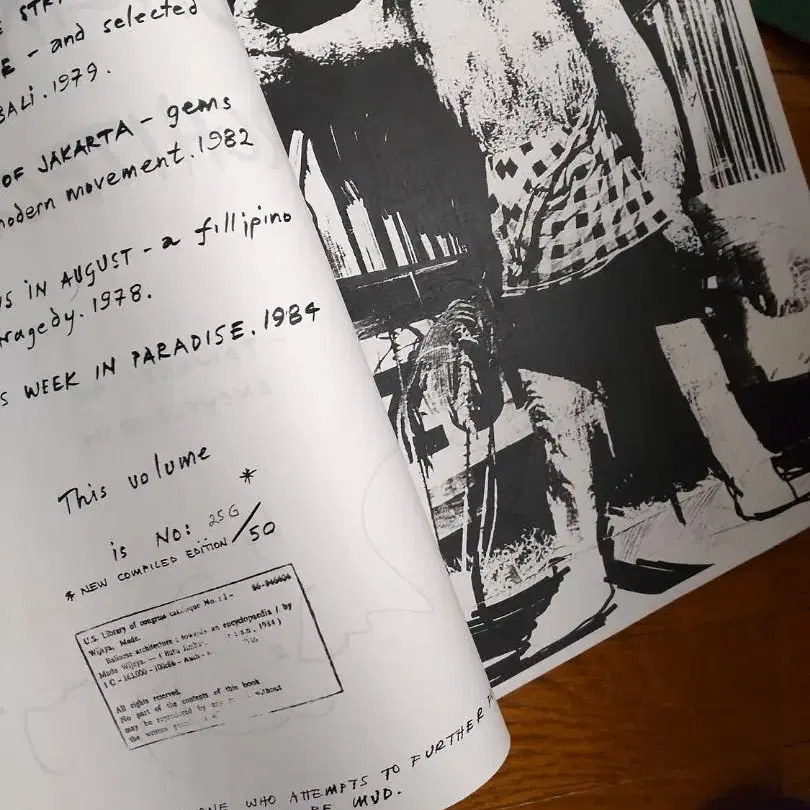 - and selected
BALi. 1979.
OF JAKARTA - gems
modern movement. 1982
iN AUGUST - a fillipino
tragedy. 1978.
WEEK IN PARADISE. 1984
This volume *
is No: 25G/50
* NEW COMPiLED EDITiON
U.S. Library of congress catalogue No. : I -
Wijaya, Made.
Balinese architecture : towards an encyclopaedia / by
Made Wijaya. — ( Batu
1984 )
All rights reserved.
No part of the contents of this book
may be reproduced by any without
the written
WHO ATTEMPTS TO FURTHER
BE MUD.